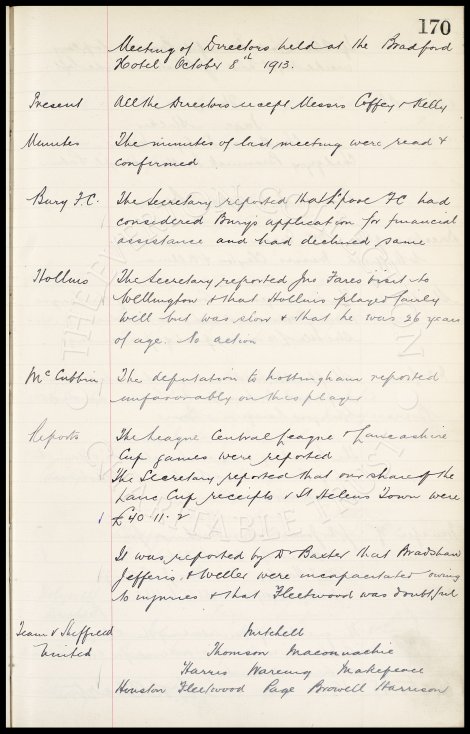 170
Meeting of Directors held at the Bradford
Hotel October 8th 1913.
Present All the Directors except Messrs Coffey & Kelly
Minutes The minutes of last meeting were read &
confirmed
Bury F.C. The Secretary reported that L'pool FC had
considered Bury's application for financial
assistance and had declined same
Hollins The Secretary reported Jno Fares visit to
Wellington & that Hollins played fairly
well but was slow & that he was 26 years
of age. No action
McCubbin The deputation to Nottingham reported
unfavorably on this player
Reports The League Central League & Lancashire
Cup games were reported
The Secretary reported that our share of the
Lanc Cup receipts v St Helens Town were
£40.11.2
It was reported by Dr Baxter that Bradshaw
Jefferis & Weller were incapacitated owing
to injuries & that Fleetwood was doubtful
Team v Sheffield Mitchell
United Thomson Maconnachie
Harris Wareing Makepeace
Houston Fleetwood Page Browell Harrison